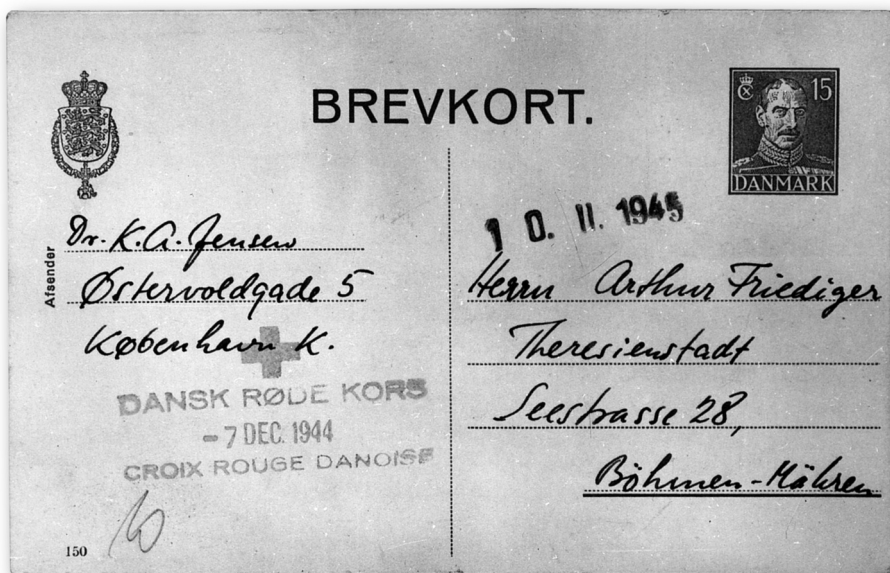 BREVKORT.
15
DANMARK
10. II. 1945
Afsender
Dr. K. A. Jensen
Østervoldgade 5
København K.
DANSK RØDE KORS
- 7 DEC. 1944
CROIX ROUGE DANOISE
150
Herrn Arthur Friediger
Theresienstadt
Seestrasse 28,
Böhmen-Mähren